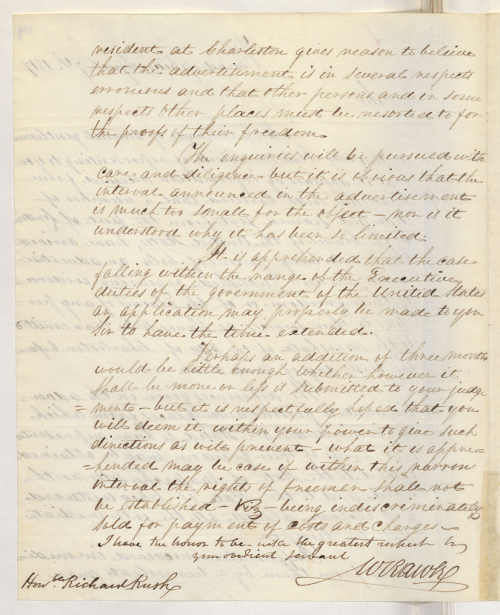 resident at Charleston gives reason to believe
that the advertisment is in several respects
erroneous and that other persons and in some
respects other places must be resorted to for
the proofs of their freedom
The enquiries will be pursued with
care and diligence but it is obvious that the
interval announced in the advertisement
is much too small for the object – nor is it
understood why it has been so limited.
It is apprehended that the case
falling within the range of the Executive
duties of the government of the United States
an application may properly be made to you
Sir to have the time extended.
Perhaps an addition of three months
would be little enough whether however it
shall be more or less is submitted to your judg
=ment – but it is respectfully hoped that you
will deem it within your power to give such
directions as will prevent – what it is appre=
=hended may be case if within this narrow
interval the right of freemen shall not
be established – viz – being indiscriminately
sold for payment of costs and charges –
I have the honor to be – with the greatest respect
your obedient servant
W Rawle
Hon. Richard Rush